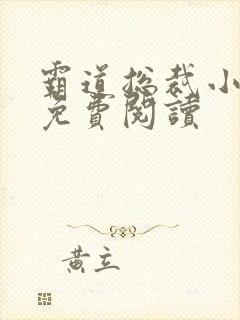 霸道總裁小
免費閱讀
黃立